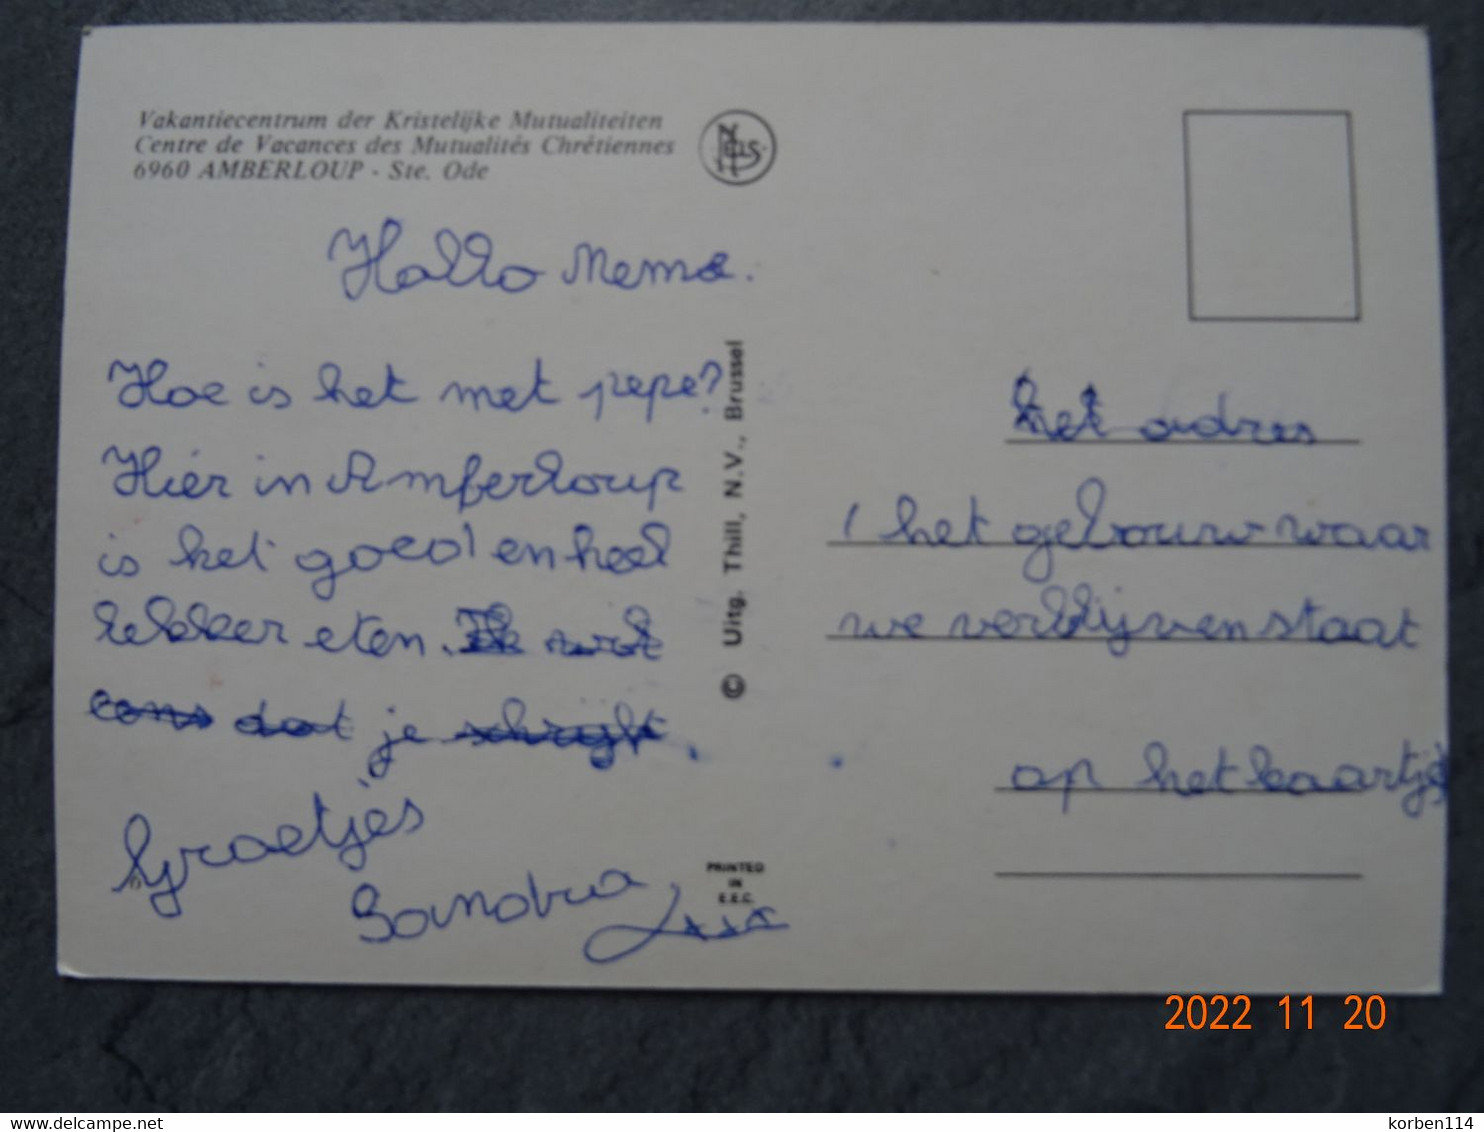 Vakantiecentrum der Kristelijke Mutualiteiten
Centre de Vacances des Mutualités Chrétiennes
6960 AMBERLOUP - Ste. Ode
NELS
Hallo Meme.
Hoe is het met pepe?
Hier in Amferloup
is het goed en heel
lekker eten.
dat je schrijft.
Groetjes
Sandra
© Uitg. Thill, N.V., Brussel
PRINTED
IN
E.E.C.
het adres
het gebouw waar
we verblijven staat
op het kaartje
2022 11 20
delcampe.net
korben114